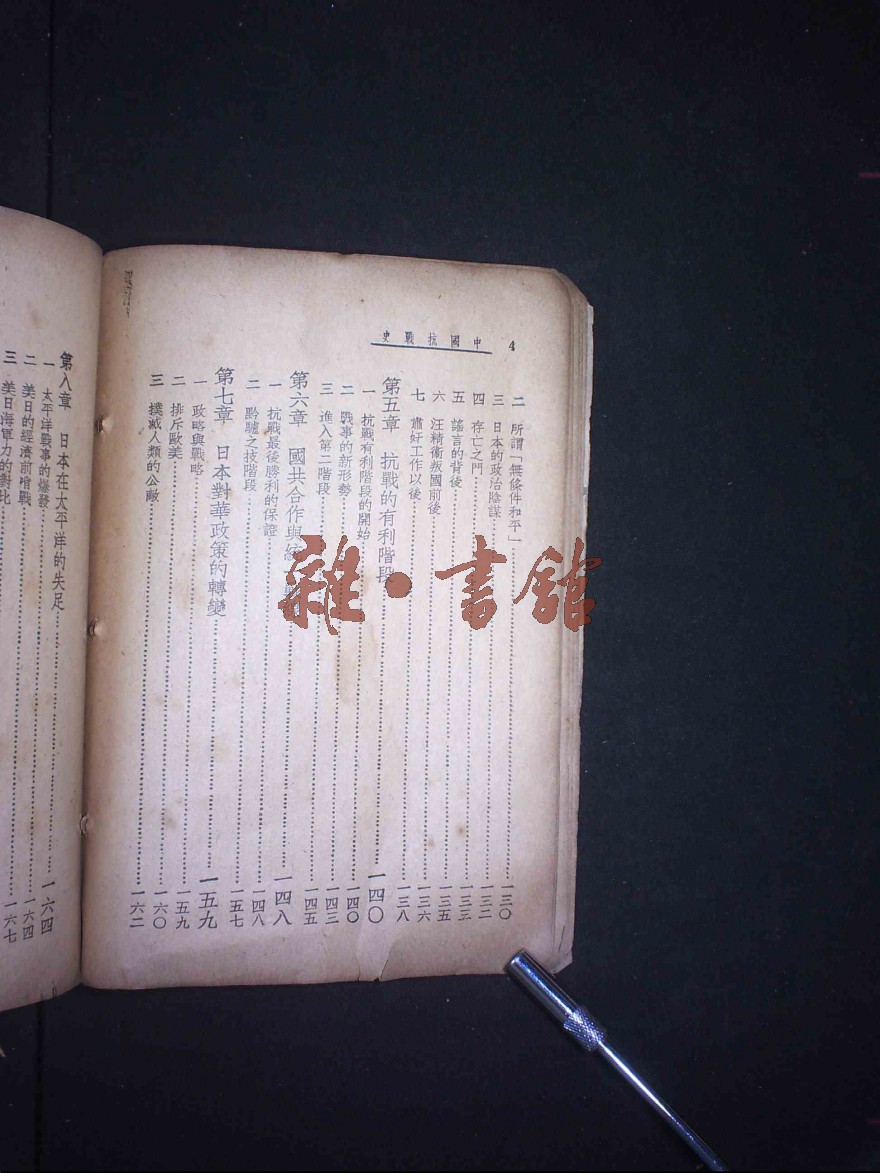 4 中國抗戰史
二 所謂「無條件和平」……一三〇
三 日本的政治陰謀……一三二
四 存亡之門……一三三
五 謠言的背後……一三五
六 汪精衞叛國前後……一三六
七 肅奸工作以後……一三八
第五章 抗戰的有利階段……一四〇
一 抗戰有利階段的開始……一四〇
二 戰事的新形勢……一四三
三 進入第二階段……一四五
第六章 國共合作與統一……一四八
一 抗戰最後勝利的保證……一四八
二 黔驢之技階段……一五七
第七章 日本對華政策的轉變……一五九
一 政略與戰略……一五九
二 排斥歐美……一六〇
三 撲滅人類的公敵……一六二
第八章 日本在太平洋的失足……一六四
一 太平洋戰事的爆發……一六四
二 美日的經濟前哨戰……一六七
三 美日海軍力的對比
雜·書館